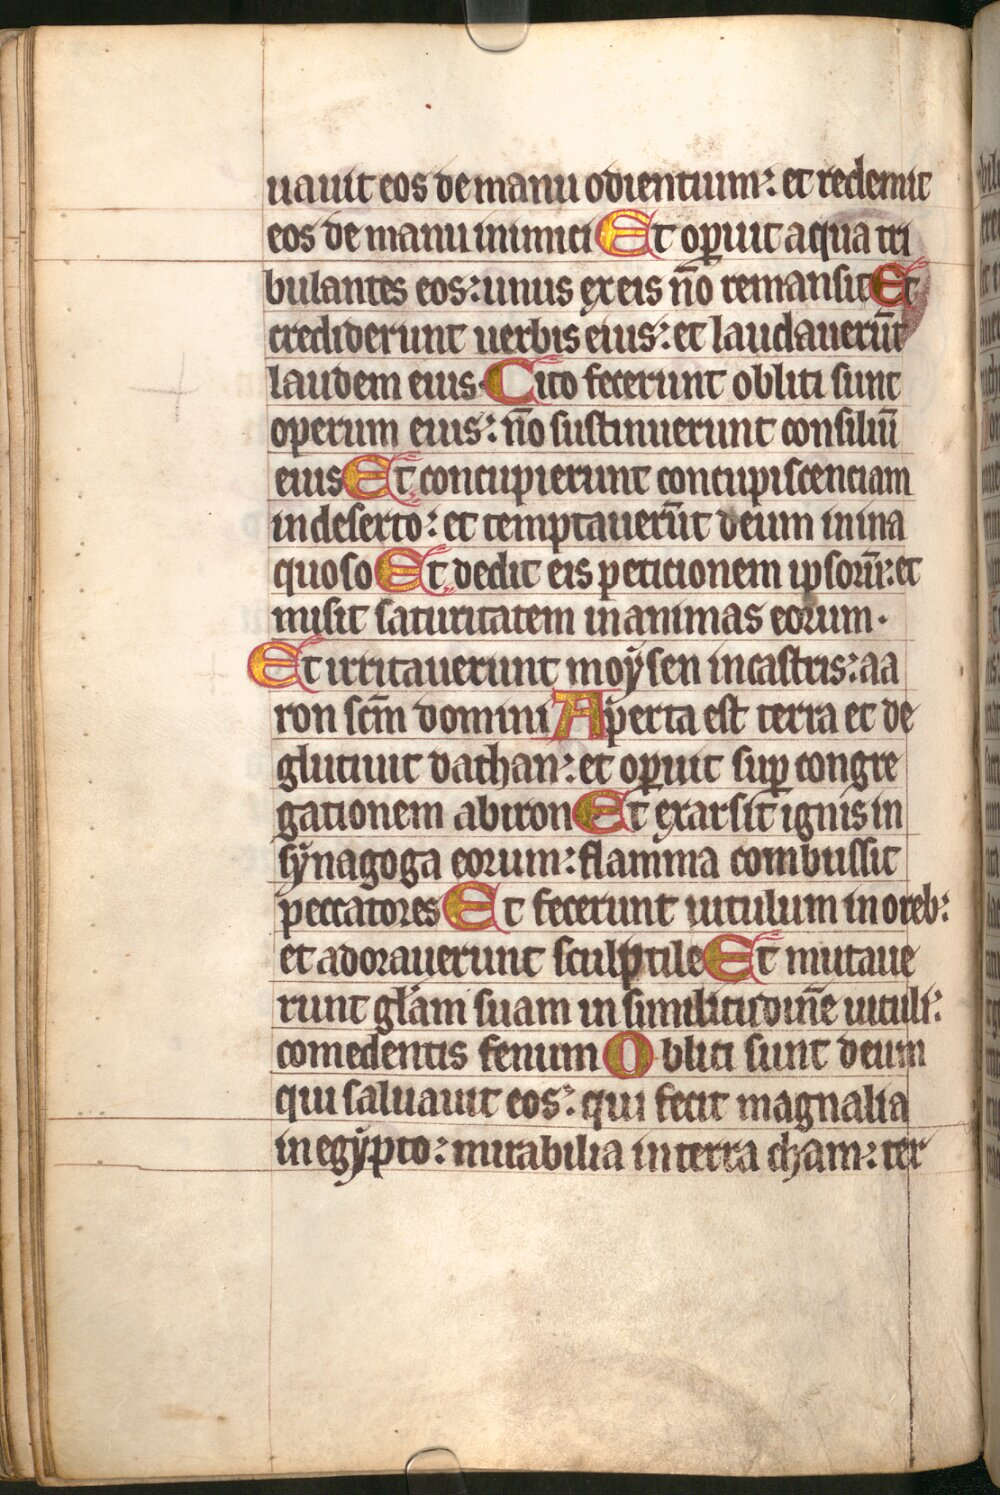 uauit eos de manu odientium: et redemit
eos de manu inimici Et op̲uit aqua tri
bulantes eos: unus ex eis nō remansit Et
crediderunt uerbis eius: et laudauerūt
laudem eius. Cito fecerunt obliti sunt
operum eius: nō sustinuerunt consiliū
eius Et concupierunt concupiscenciam
in deserto: et temptauerūt deum in ina
quoso Et dedit eis peticionem ipsorū: et
misit saturitatem in animas eorum.
Et irritauerunt moẏsen in castris: aa
ron scm̄ domini Aperta est terra et de
glutiuit dathan: et op̲uit sup̲ congre
gationem abiron Et exarsit ignis in
sẏnagoga eorum: flamma combussit
peccatores Et fecerunt uitulum in oreb:
et adorauerunt sculptile Et mutaue
runt gl̄am suam in similitudinē uituli:
comedentis fenum Obliti sunt deum
qui saluauit eos: qui fecit magnalia
in egẏpto: mirabilia in terra cham: ter